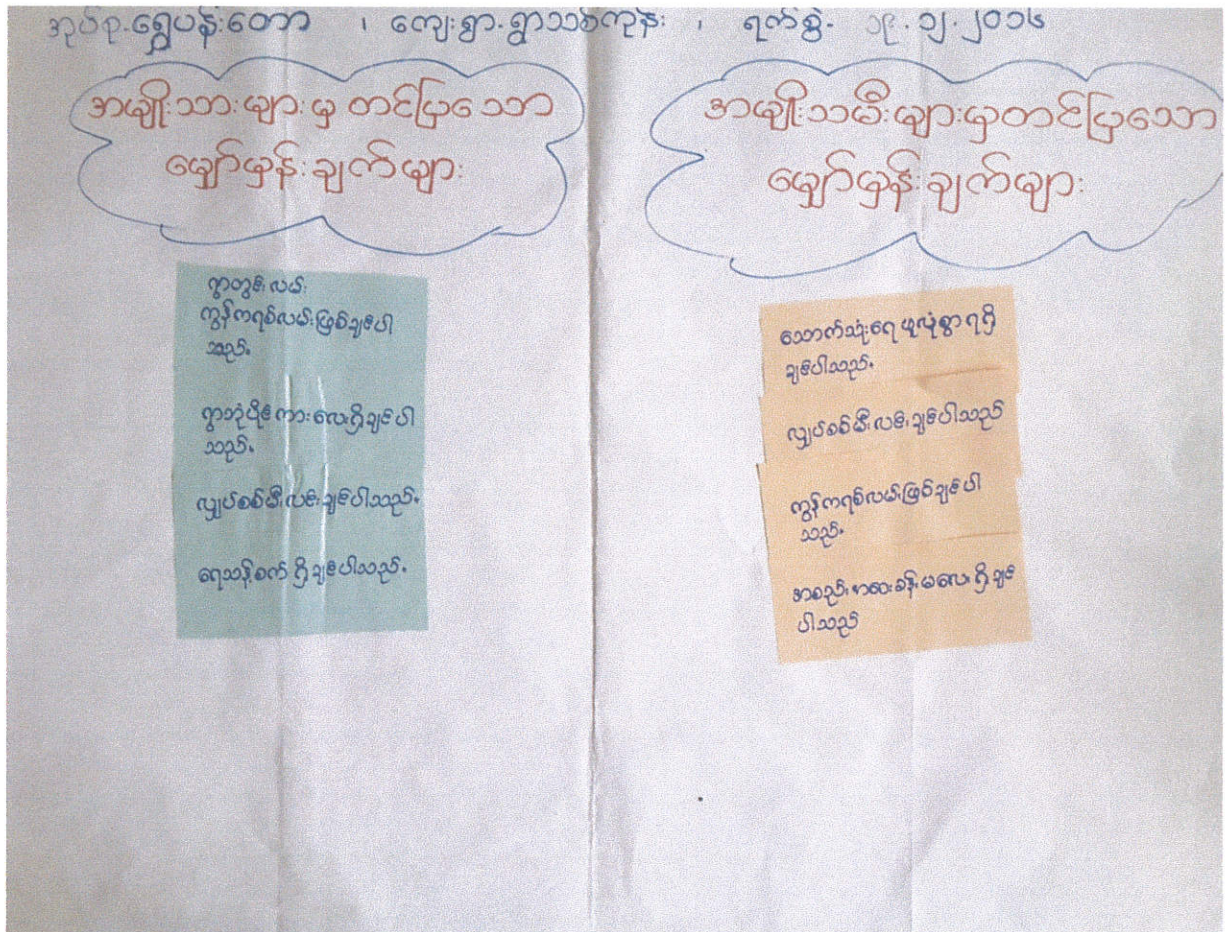 အုပ်စု.ရွှေပန်းတော ၊ ကျေးရွာ.ရွာသစ်ကုန်း ၊ ရက်စွဲ. ၁၉.၁၂.၂၀၁၆
အမျိုးသားများမှ တင်ပြသော
မျှော်မှန်းချက်များ
ရွာတွင်းလမ်း
ကွန်ကရစ်လမ်းဖြစ်ချင်ပါ
သည်။
ရွာဘုံပိုင်ကားလေးရှိချင်ပါ
သည်။
လျှပ်စစ်မီးလင်းချင်ပါသည်။
ရေသန့်စက်ရှိချင်ပါသည်။
အမျိုးသမီးများမှတင်ပြသော
မျှော်မှန်းချက်များ
သောက်သုံးရေဖူလုံစွာရရှိ
ချင်ပါသည်။
လျှပ်စစ်မီးလင်းချင်ပါသည်
ကွန်ကရစ်လမ်းဖြစ်ချင်ပါ
သည်။
အစည်းအဝေးခန်းမလေးရှိချင်
ပါသည်